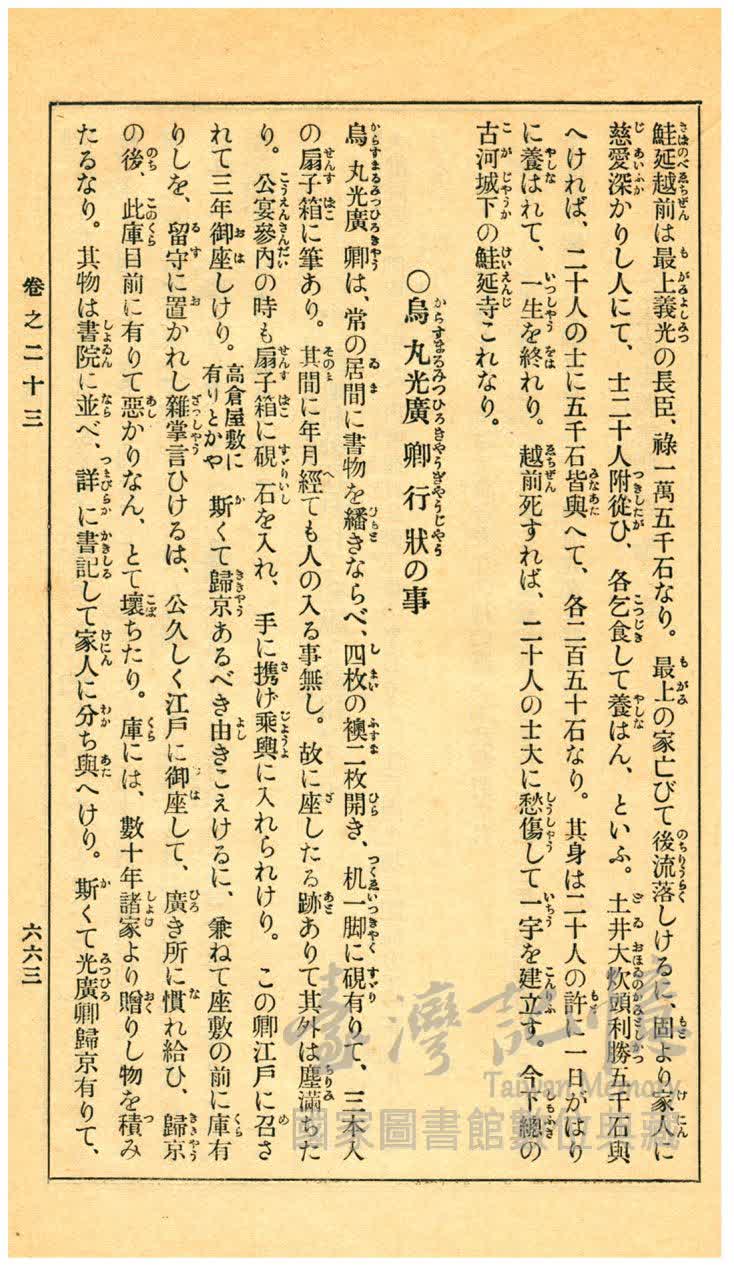 鮭延越前は最上義光の長臣、祿一萬五千石なり。最上の家亡びて後流落しけるに、固より家人に
慈愛深かりし人にて、士二十人附從ひ、各乞食して養はん、といふ。土井大炊頭利勝五千石與
へければ、二十人の士に五千石皆與へて、各二百五十石なり。其身は二十人の許に一日がはり
に養はれて、一生を終れり。越前死すれば、二十人の士大に愁傷して一宇を建立す。今下總の
古河城下の鮭延寺これなり。
〇烏丸光廣卿行狀の事
烏丸光廣卿は、常の居間に書物を繙きならべ、四枚の襖二枚開き、机一脚に硯有りて、三本入
の扇子箱に筆あり。其間に年月經ても人の入る事無し。故に座したる跡ありて其外は塵滿ちた
り。公宴參內の時も扇子箱に硯石を入れ、手に携げ乘輿に入れられけり。この卿江戶に召さ
れて三年御座しけり。高倉屋敷に有りとかや 斯くて歸京あるべき由きこえけるに、兼ねて座敷の前に庫有
りしを、留守に置かれし雜掌言ひけるは、公久しく江戶に御座して、廣き所に慣れ給ひ、歸京
の後、此庫目前に有りて惡かりなん、とて壞ちたり。庫には、數十年諸家より贈りし物を積み
たるなり。其物は書院に並べ、詳に書記して家人に分ち與へけり。斯くて光廣卿歸京有りて、
卷之二十三
六六三
臺灣記憶
Taiwan Memory
國家圖書館數位典藏